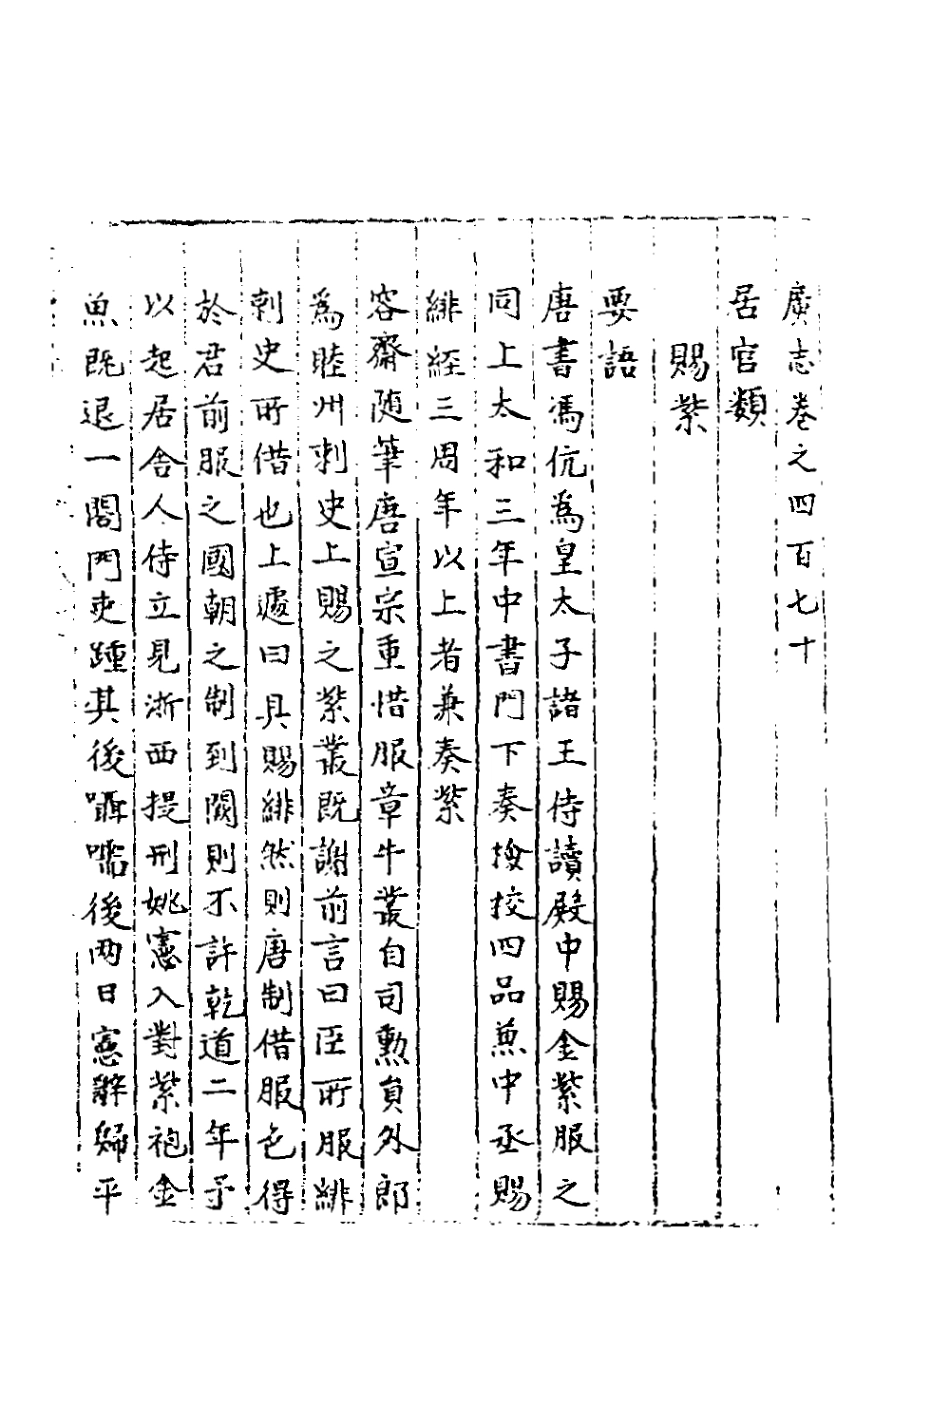 廣志卷之四百七十
居官類
賜紫
要語
唐書馮伉為皇太子諸王侍讀殿中賜金紫服之
同上太和三年中書門下奏檢挍四品兼中丞賜
緋經三周年以上者兼奏紫
容齋随筆唐宣宗重惜服章牛叢自司勲員外郎
為睦州刺史上賜之紫叢既謝前言曰臣所服緋
刺史所借也上遽曰具賜緋然則唐制借服色得
於君前服之國朝之制到闕則不許乾道二年予
以起居舎人侍立見浙西提刑姚憲入對紫袍金
魚既退一閤門吏踵其後囁嚅後两日憲辭歸平